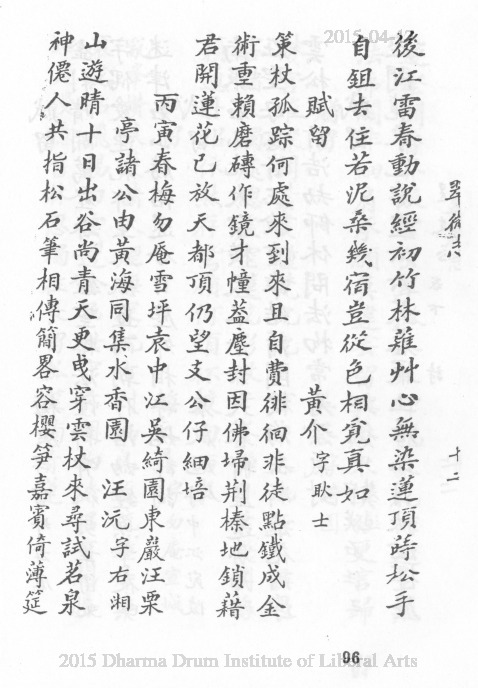 2015-04-
後江雷春動說經初竹林薙艸心無染蓮頂蒔松手
自鉏去住若泥桑幾宿豈從色相覓真如
賦留　黃介字耿士
策杖孤踪何處來到來且自費徘徊非徒點鐵成金
術重賴磨磚作鏡才幢葢塵封因佛埽荆榛地鎖藉
君開蓮花已放天都頂仍望支公仔細培
丙寅春梅勿庵雪坪袁中江吳綺園東巖汪栗
亭諸公由黃海同集水香園　汪沅字右湘
山遊晴十日出谷尚青天更曳穿雲杖來尋試茗泉
神僊人共指松石筆相傳簡畧容櫻笋嘉賓倚薄筵
翠微
十二
96
2015 Dharma Drum Institute of Liberal Arts